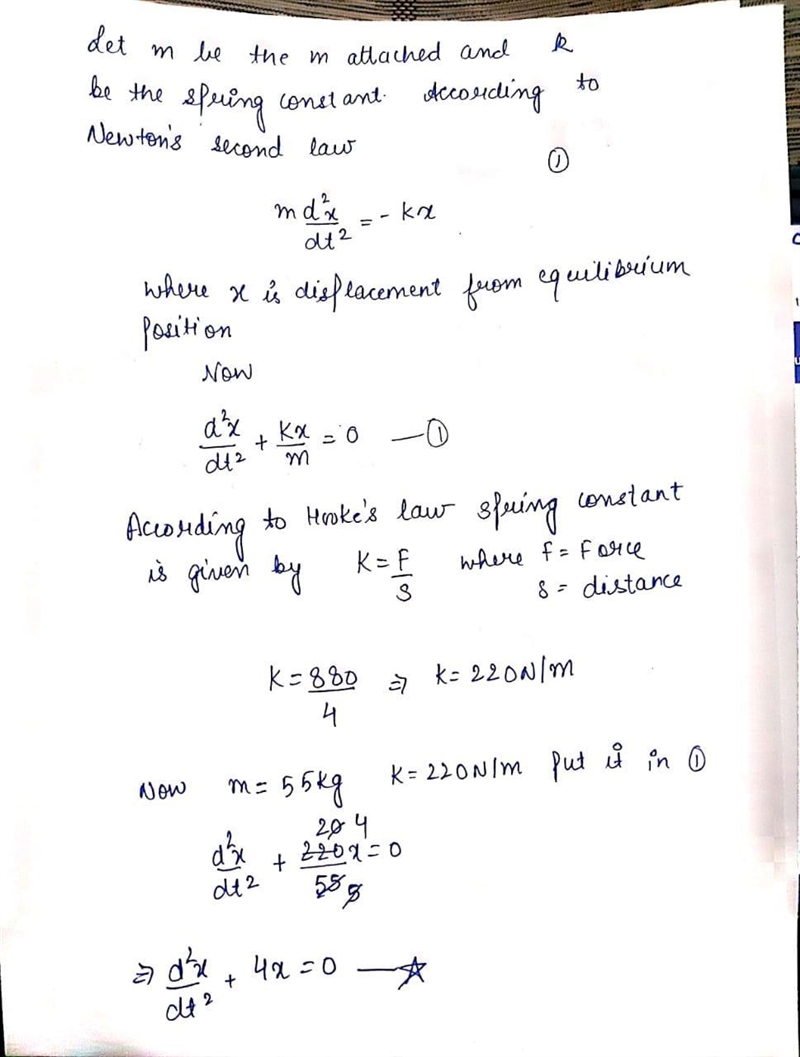 Let m be the m attached and k
be the spring constant. According to
Newton's second law
①
m d²x/dt² = - kx
where x is displacement from equilibrium
position
Now
d²x/dt² + Kx/m = 0 — ①
According to Hooke's law spring constant
is given by K = F/S where f = Force
s = distance
K = 880/4 ⇒ K = 220N/m
Now m = 55kg K = 220N/m Put it in ①
20 4
d²x/dt² + 220x/55 = 0
5
⇒ d²x/dt² + 4x = 0 — ☆